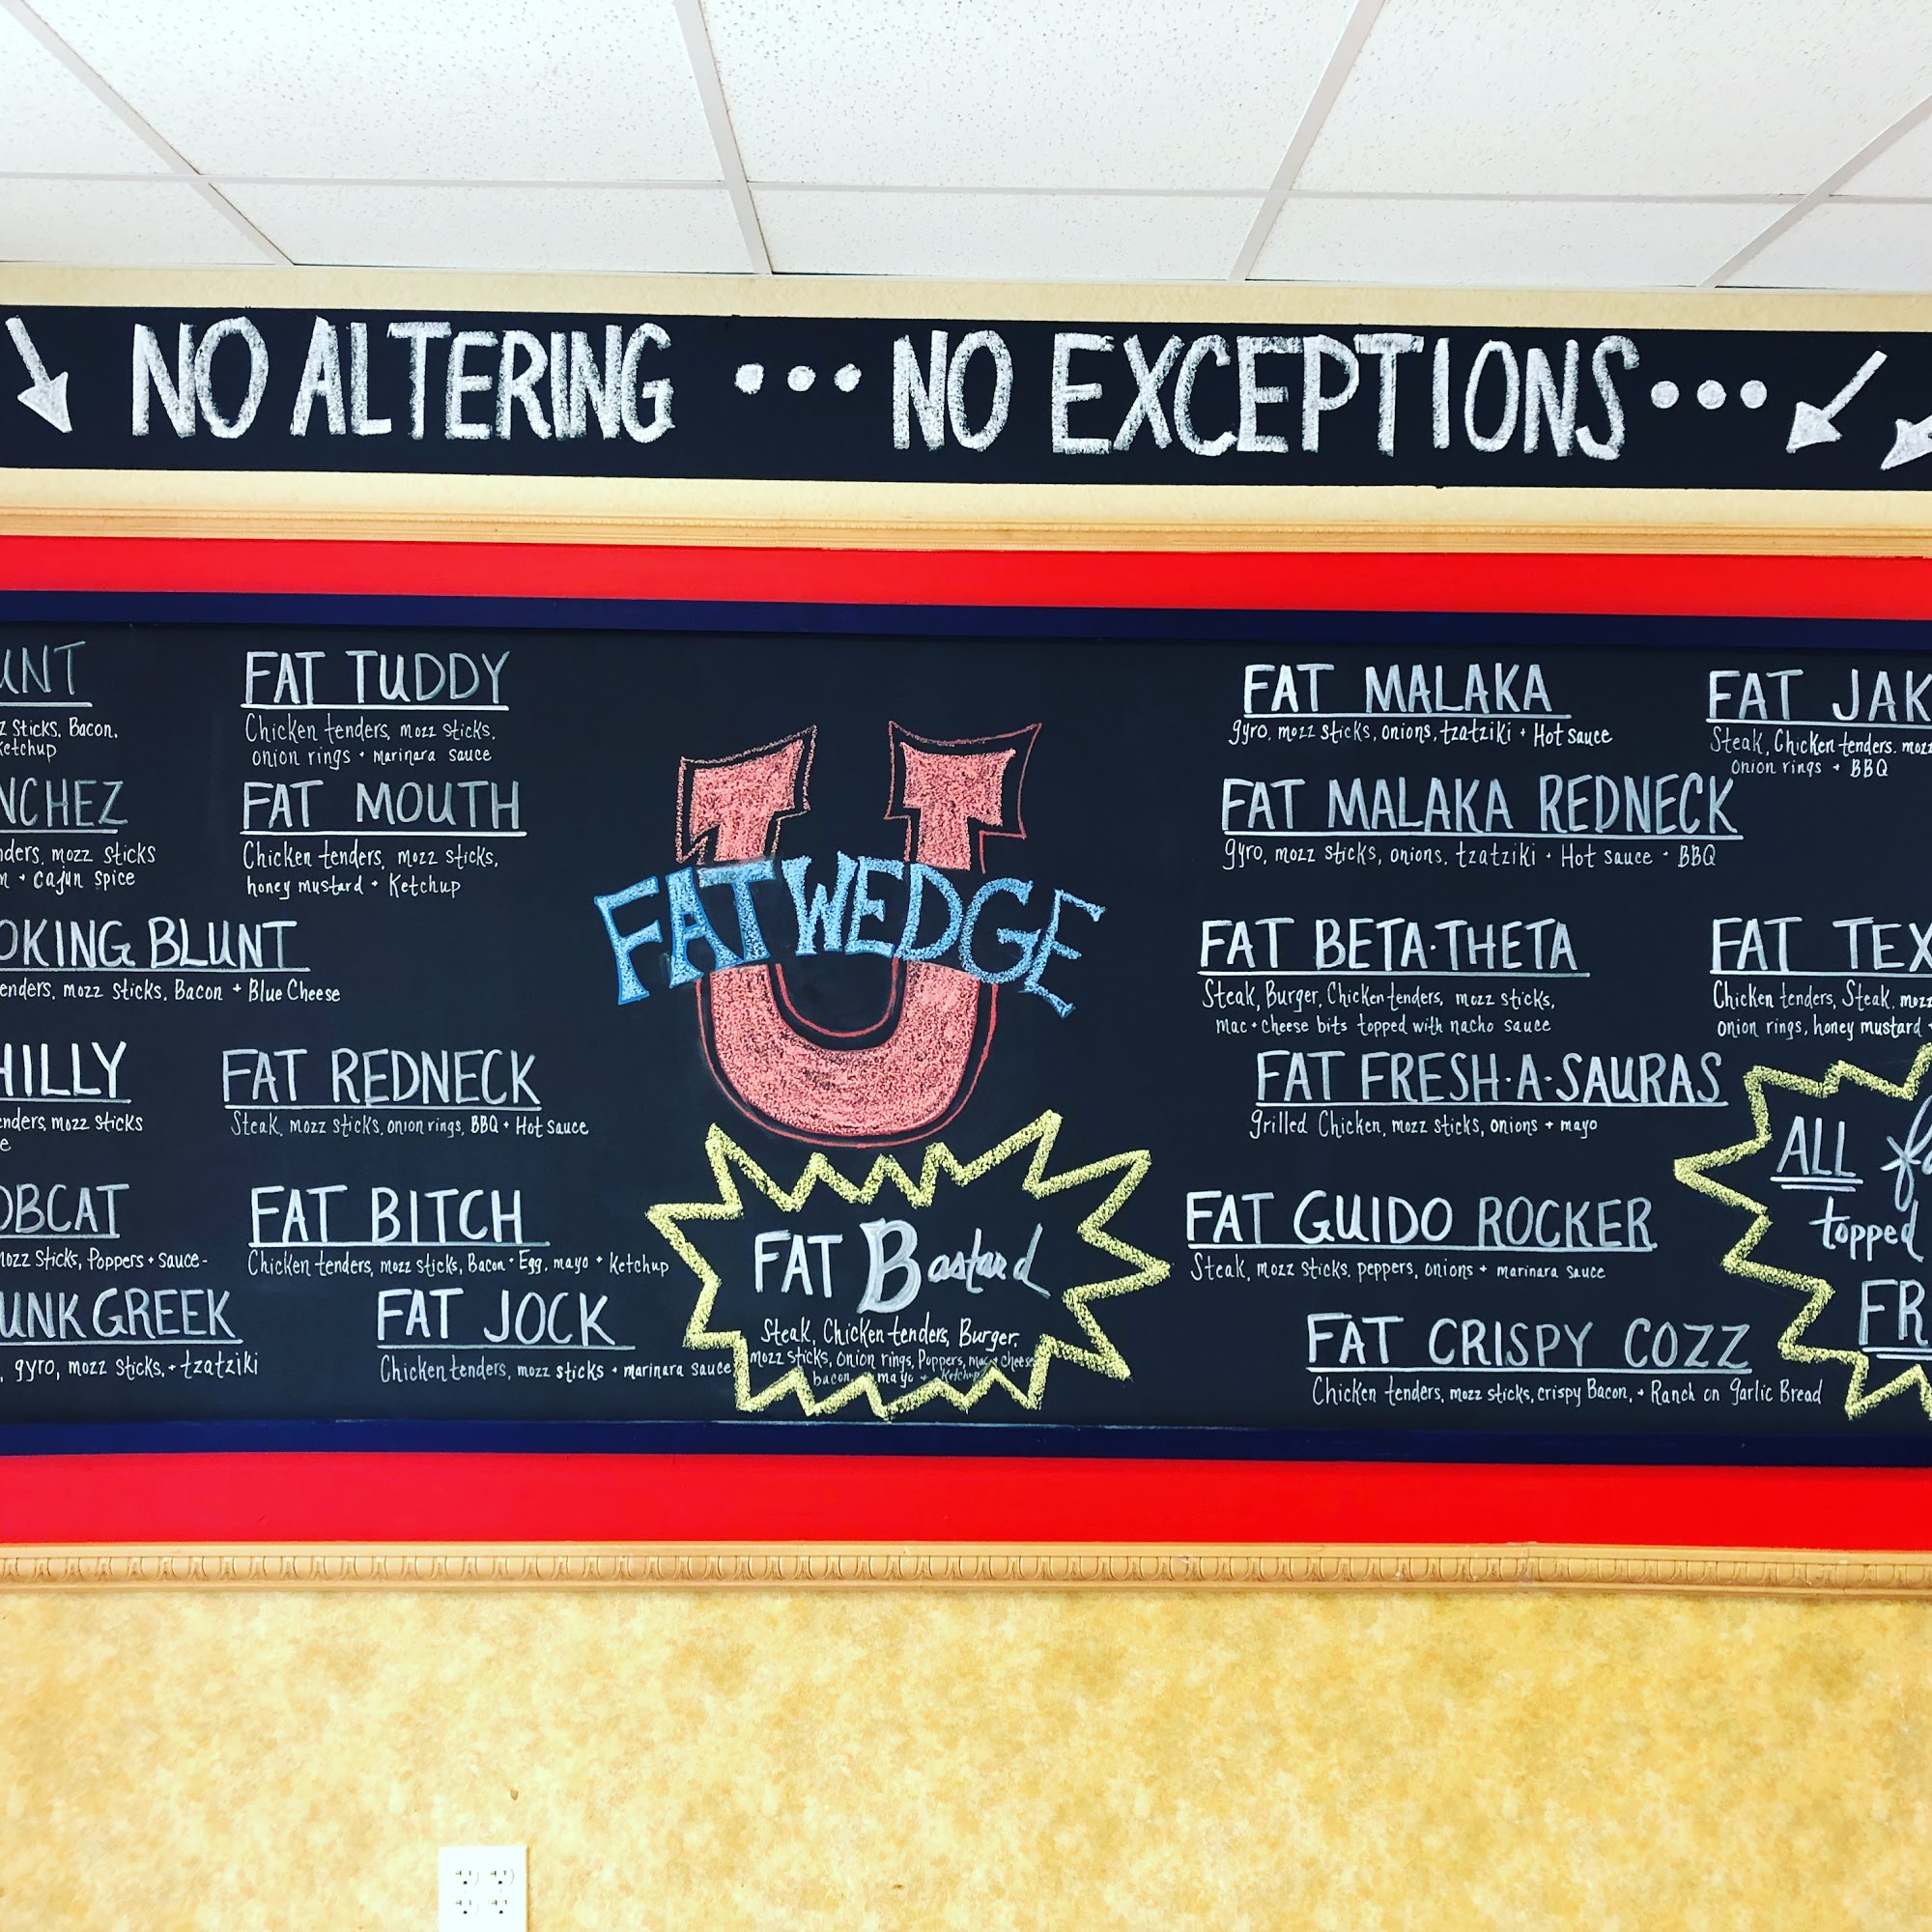 NO ALTERING ... NO EXCEPTIONS...
UNT
z Sticks, Bacon,
Ketchup
NCHEZ
nders, mozz sticks
+ cajun spice
OKING BLUNT
enders, mozz sticks, Bacon + Blue Cheese
HILLY
enders, mozz sticks
e
OBCAT
mozz sticks, Poppers + sauce-
UNK GREEK
, gyro, mozz sticks, + tzatziki
FAT TUDDY
Chicken tenders, mozz sticks,
onion rings + marinara sauce
FAT MOUTH
Chicken tenders, mozz sticks,
honey mustard + Ketchup
FAT REDNECK
Steak, mozz sticks, onion rings, BBQ + Hot sauce
FAT BITCH
Chicken tenders, mozz sticks, Bacon + Egg, mayo + Ketchup
FAT JOCK
Chicken tenders, mozz sticks + marinara sauce
U
FAT WEDGE
FAT Bastard
Steak, Chicken tenders, Burger,
mozz sticks, onion rings, Poppers, mac + cheese
bacon, mayo + Ketchup
FAT MALAKA
gyro, mozz sticks, onions, tzatziki + Hot sauce
FAT MALAKA REDNECK
gyro, mozz sticks, onions, tzatziki + Hot sauce + BBQ
FAT BETA·THETA
Steak, Burger, Chicken tenders, mozz sticks,
mac + cheese bits topped with nacho sauce
FAT FRESH·A·SAURAS
grilled Chicken, mozz sticks, onions + mayo
FAT GUIDO ROCKER
Steak, mozz sticks, peppers, onions + marinara sauce
FAT CRISPY COZZ
Chicken tenders, mozz sticks, crispy Bacon, + Ranch on garlic Bread
FAT JAK
Steak, Chicken tenders, mozz
onion rings + BBQ
FAT TEX
Chicken tenders, Steak, mozz
onion rings, honey mustard
ALL fa
topped
FR